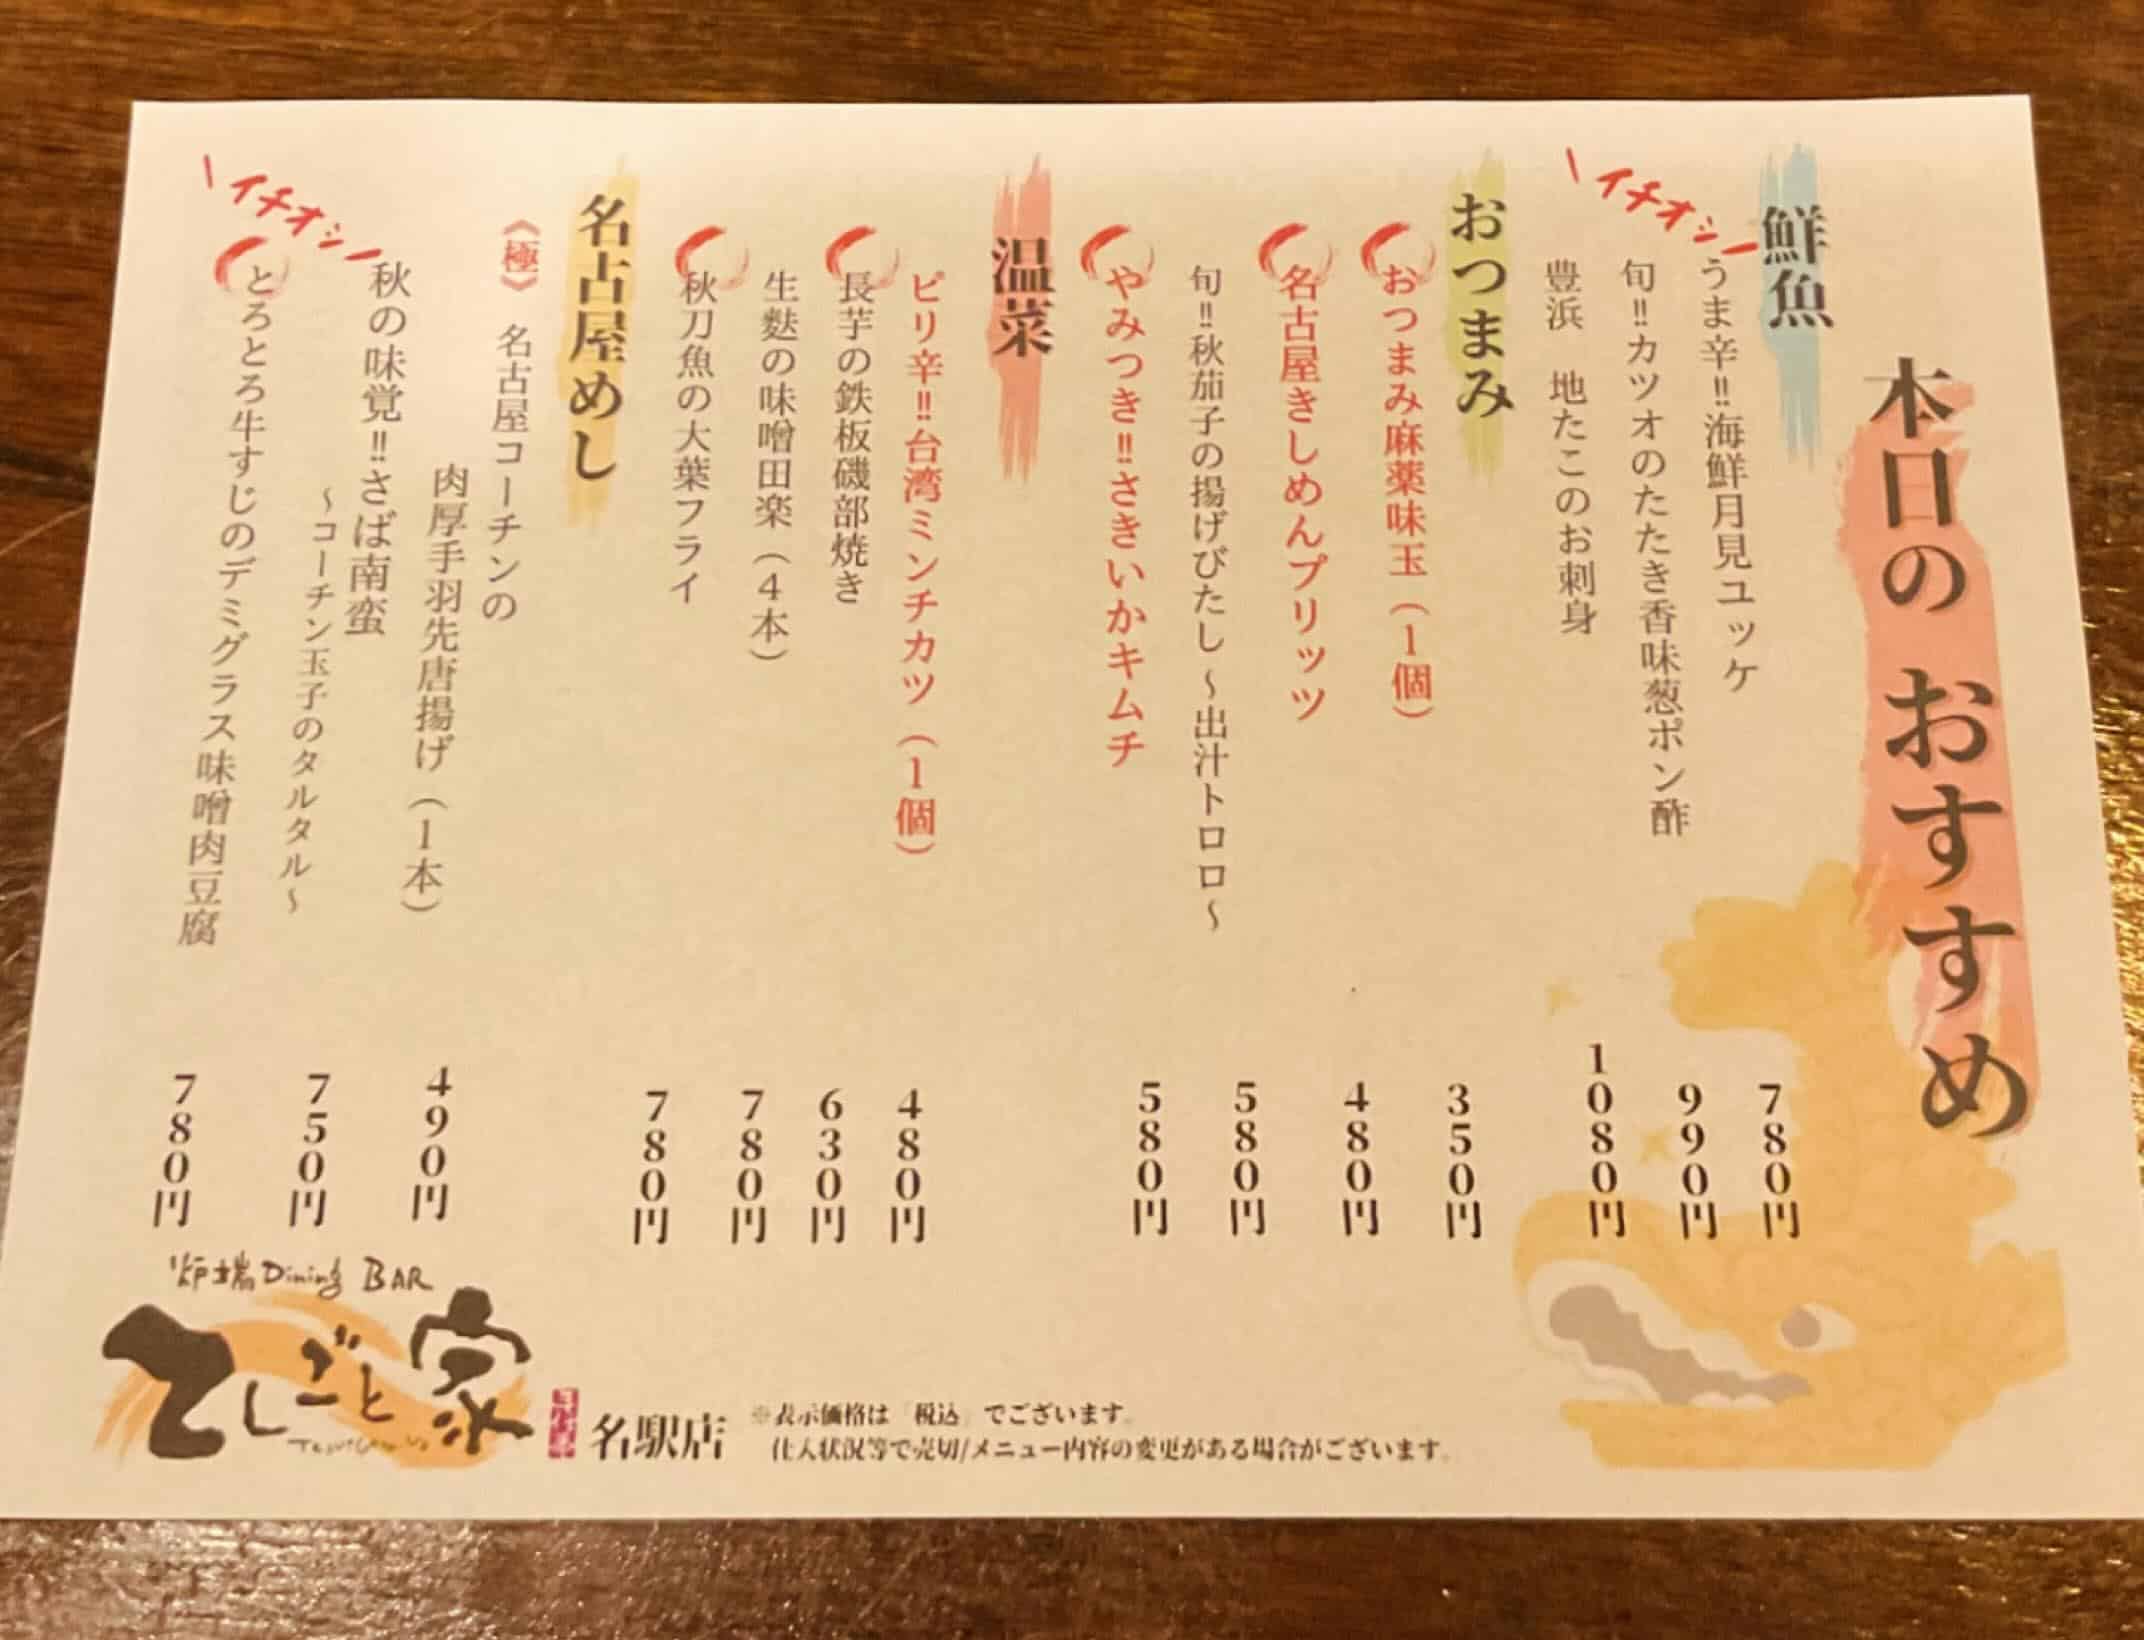 本日の おすすめ
鮮魚
\イチオシ/
うま辛!!海鮮月見ユッケ
780円
旬!!カツオのたたき香味葱ポン酢
990円
豊浜 地たこのお刺身
1080円
おつまみ
おつまみ麻薬味玉(1個)
350円
名古屋きしめんプリッツ
480円
旬!!秋茄子の揚げびたし~出汁トロロ~
580円
やみつき!!さきいかキムチ
580円
温菜
ピリ辛!!台湾ミンチカツ(1個)
480円
長芋の鉄板磯部焼き
630円
生麩の味噌田楽(4本)
780円
秋刀魚の大葉フライ
780円
名古屋めし
《極》 名古屋コーチンの
肉厚手羽先唐揚げ(1本)
490円
\イチオシ/
秋の味覚!!さば南蛮
~コーチン玉子のタルタル~
750円
とろとろ牛すじのデミグラス味噌肉豆腐
780円
炉端Dining BAR
てしごと家
名駅店
※表示価格は「税込」でございます。
仕入状況等で売切/メニュー内容の変更がある場合がございます。